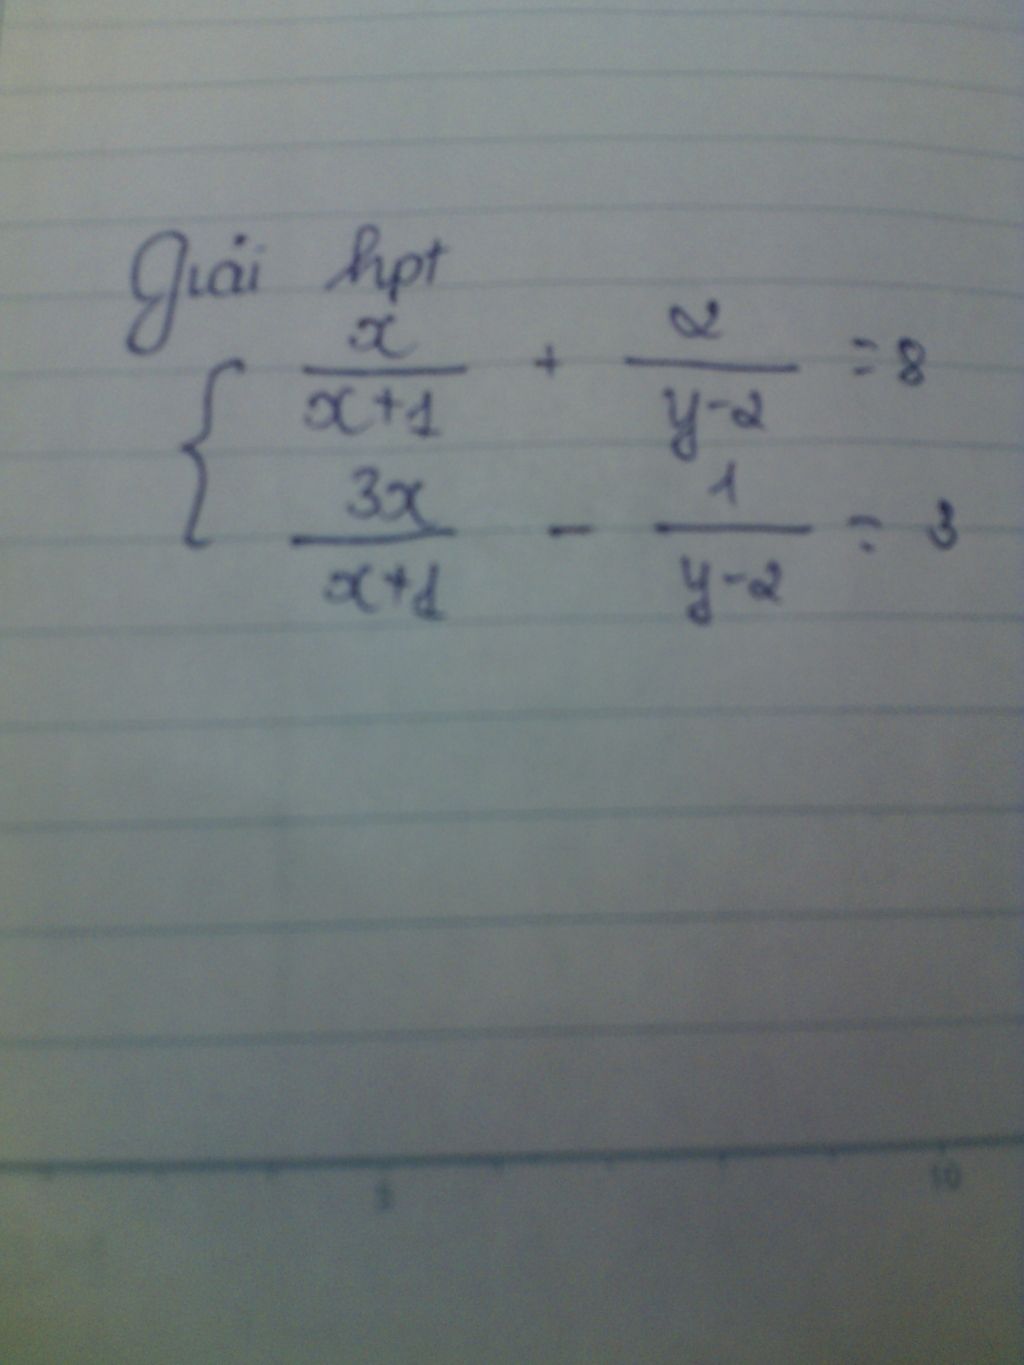 Giải hpt
x/(x+1) + 2/(y-2) = 8
3x/(x+1) - 1/(y-2) = 3
5 10